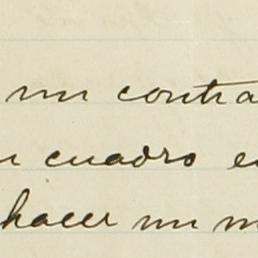 un contra
n cuadro e
hacer un m